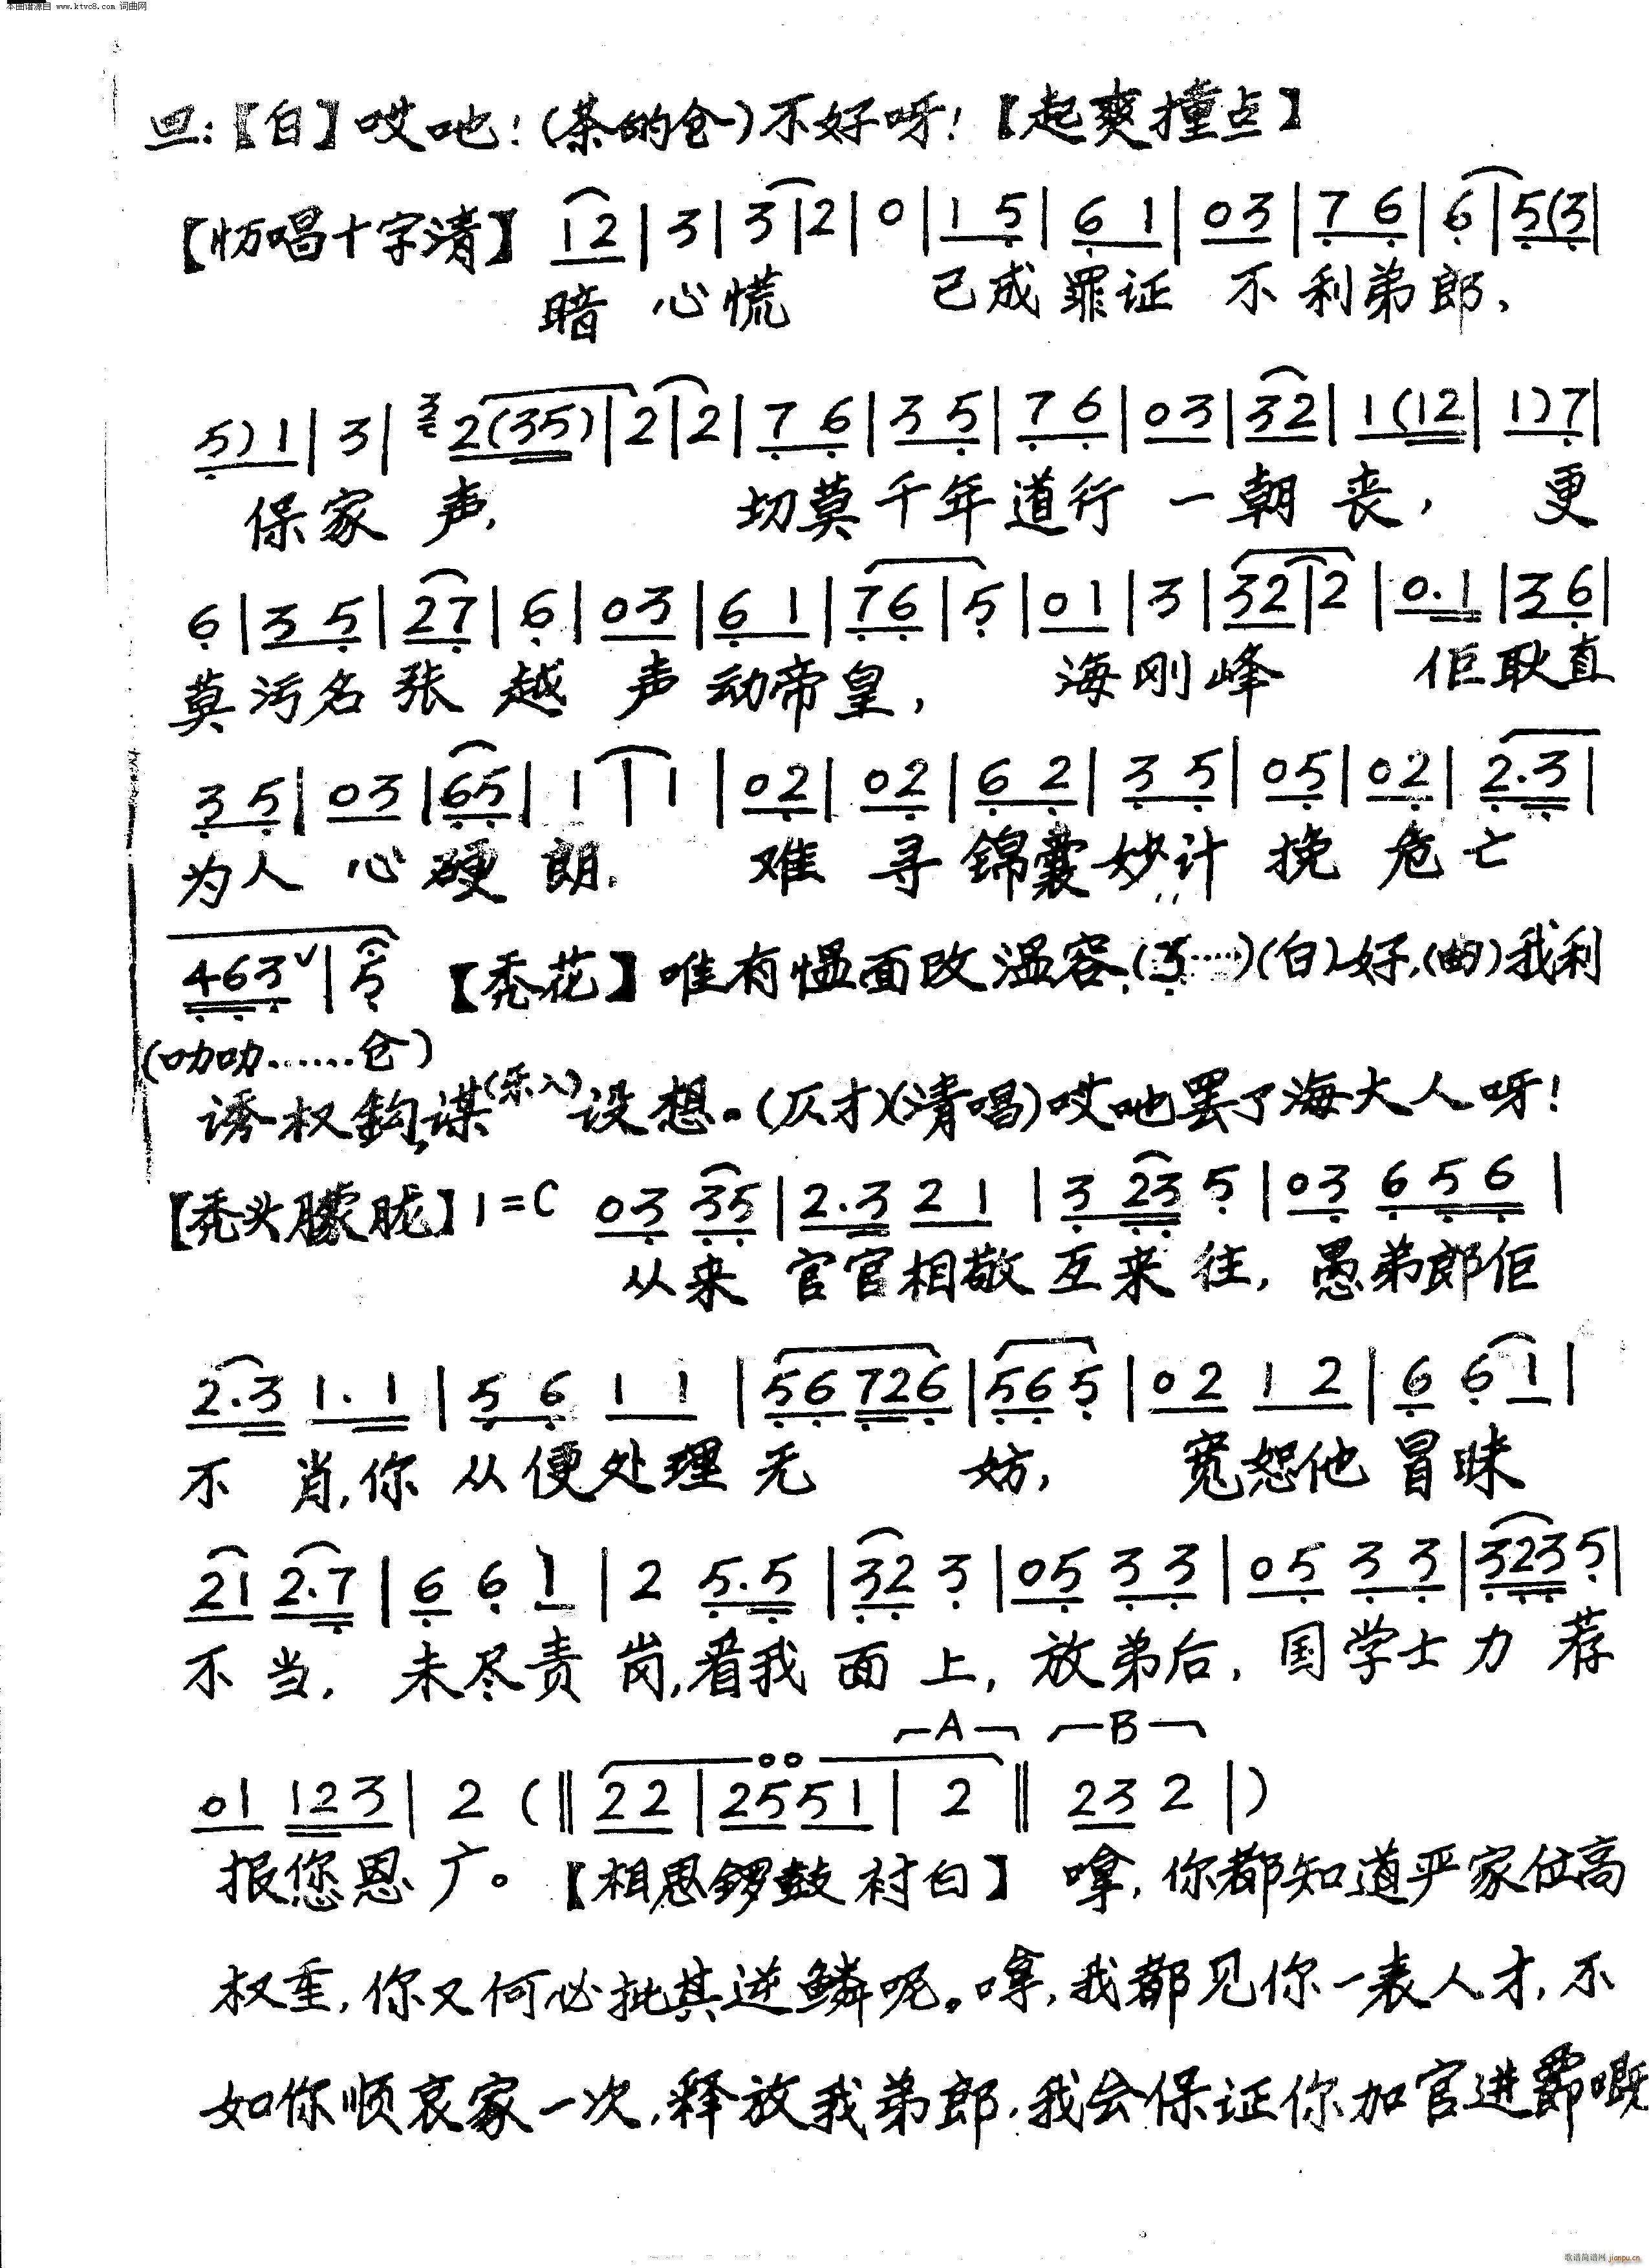 本曲谱源自 www.ktvc8.com 词曲网
旦:【白】哎吔!(茶的仓)不好呀!【起爽撞点】
【快唱十字清】 12 | 3 | 3 | 2 | 0 | 1 5 | 6 1 | 03 | 7 6 | 6 | 5(3 |
暗 心慌 已成罪证 不利弟郎,
5) 1 | 3 | 2(35) | 2 | 2 | 7 6 | 3 5 | 7 6 | 03 | 32 | 1(12 | 1)7 |
保家声, 切莫千年道行一朝丧, 更
6 | 3 5 | 27 | 6 | 03 | 6 1 | 76 | 5 | 01 | 3 | 32 | 2 | 0.1 | 36 |
莫污名张越声动帝皇, 海刚峰 佢耿直
3 5 | 03 | 65 | 1 | 1 | 02 | 02 | 6 2 | 3 5 | 05 | 02 | 2.3 |
为人心硬朗. 难寻锦囊妙计挽危亡
463 | 5 【秃花】唯有愠面改温容,(3……)(白)好,(曲)我利
(叻叻……仓)
诱权鈎谋(乐入)设想。(仄才)(清唱)哎吔罢了海大人呀!
【秃头朦胧】1=C 03 35 | 2.3 2 1 | 3 23 5 | 03 6 5 6 |
从来官官相敬互来往, 愚弟郎佢
2.3 1.1 | 5 6 1 1 | 56 726 | 56 5 | 02 1 2 | 6 6 1 |
不肖,你从便处理无妨, 宽恕他冒昧
21 2.7 | 6 6 1 | 2 5.5 | 32 3 | 05 3 3 | 05 3 3 | 323 5 |
不当, 未尽责岗,看我面上, 放弟后, 国学士力荐
A B
01 123 | 2 (‖ 22 | 2551 | 2 ‖ 23 2 |)
报您恩广。【相思锣鼓衬白】嗱,你都知道严家位高
权重,你又何必批其逆鳞呢。嗱,我都见你一表人才,不
如你顺哀家一次,释放我弟郎,我会保证你加官进爵嘅
歌谱简谱网 jianpu.cn